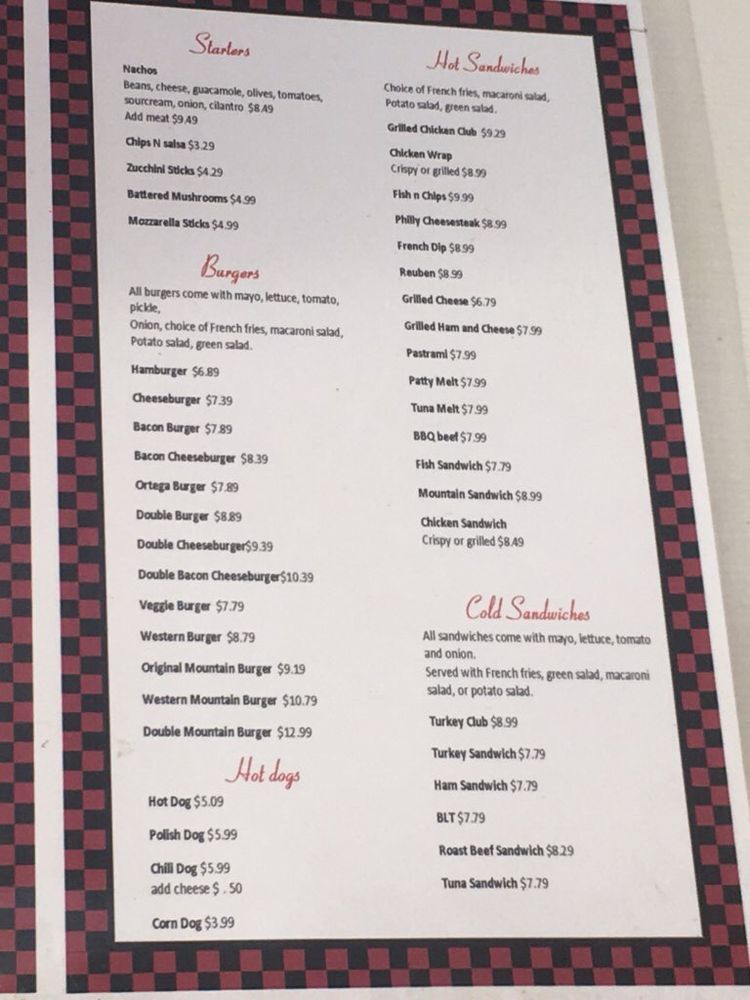 Starters
Nachos
Beans, cheese, guacamole, olives, tomatoes,
sourcream, onion, cilantro $8.49
Add meat $9.49
Chips N salsa $3.29
Zucchini Sticks $4.29
Battered Mushrooms $4.99
Mozzarella Sticks $4.99
Burgers
All burgers come with mayo, lettuce, tomato,
pickle,
Onion, choice of French fries, macaroni salad,
Potato salad, green salad.
Hamburger $6.89
Cheeseburger $7.39
Bacon Burger $7.89
Bacon Cheeseburger $8.39
Ortega Burger $7.89
Double Burger $8.89
Double Cheeseburger$9.39
Double Bacon Cheeseburger$10.39
Veggie Burger $7.79
Western Burger $8.79
Original Mountain Burger $9.19
Western Mountain Burger $10.79
Double Mountain Burger $12.99
Hot dogs
Hot Dog $5.09
Polish Dog $5.99
Chili Dog $5.99
add cheese $ .50
Corn Dog $3.99
Hot Sandwiches
Choice of French fries, macaroni salad,
Potato salad, green salad.
Grilled Chicken Club $9.29
Chicken Wrap
Crispy or grilled $8.99
Fish n Chips $9.99
Philly Cheesesteak $8.99
French Dip $8.99
Reuben $8.99
Grilled Cheese $6.79
Grilled Ham and Cheese $7.99
Pastrami $7.99
Patty Melt $7.99
Tuna Melt $7.99
BBQ beef $7.99
Fish Sandwich $7.79
Mountain Sandwich $8.99
Chicken Sandwich
Crispy or grilled $8.49
Cold Sandwiches
All sandwiches come with mayo, lettuce, tomato
and onion.
Served with French fries, green salad, macaroni
salad, or potato salad.
Turkey Club $8.99
Turkey Sandwich $7.79
Ham Sandwich $7.79
BLT $7.79
Roast Beef Sandwich $8.29
Tuna Sandwich $7.79